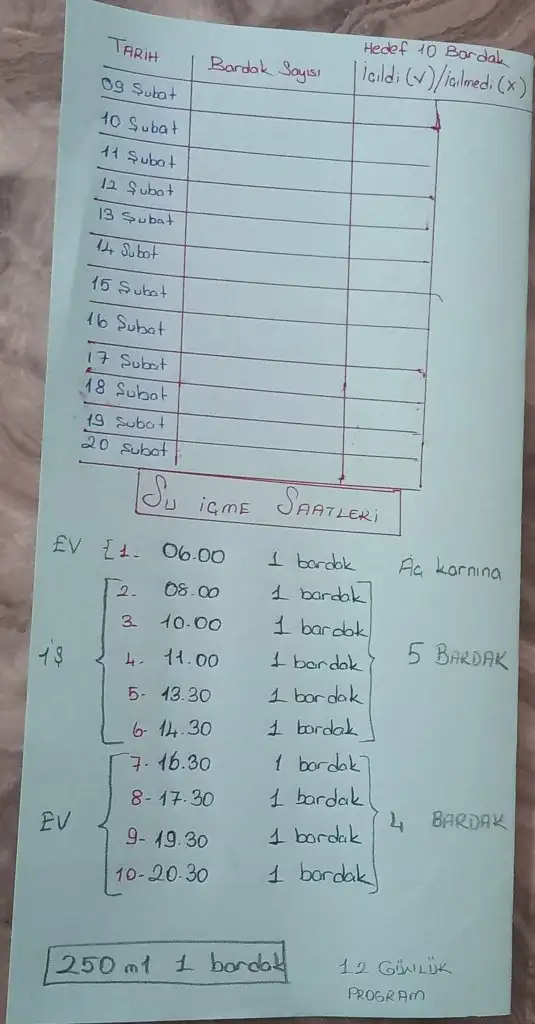 Hedef 10 Bardak
TARiH Bardak Sayısı içildi (√)/içilmedi (x)
09 Şubat
10 Şubat
11 Şubat
12 Şubat
13 Şubat
14 Şubat
15 Şubat
16 Şubat
17 Şubat
18 Şubat
19 Şubat
20 Şubat
SU içmE SAATLERi
EV {1- 06.00 1 bardak Aç karnına
2- 08.00 1 bardak
3- 10.00 1 bardak
iş 4- 11.00 1 bardak 5 BARDAK
5- 13.30 1 bardak
6- 14.30 1 bardak
7- 16.30 1 bardak
8- 17.30 1 bardak
EV 9- 19.30 1 bardak 4 BARDAK
10- 20.30 1 bardak
250 ml 1 bardak 12 GÜNLÜK
PROGRAM